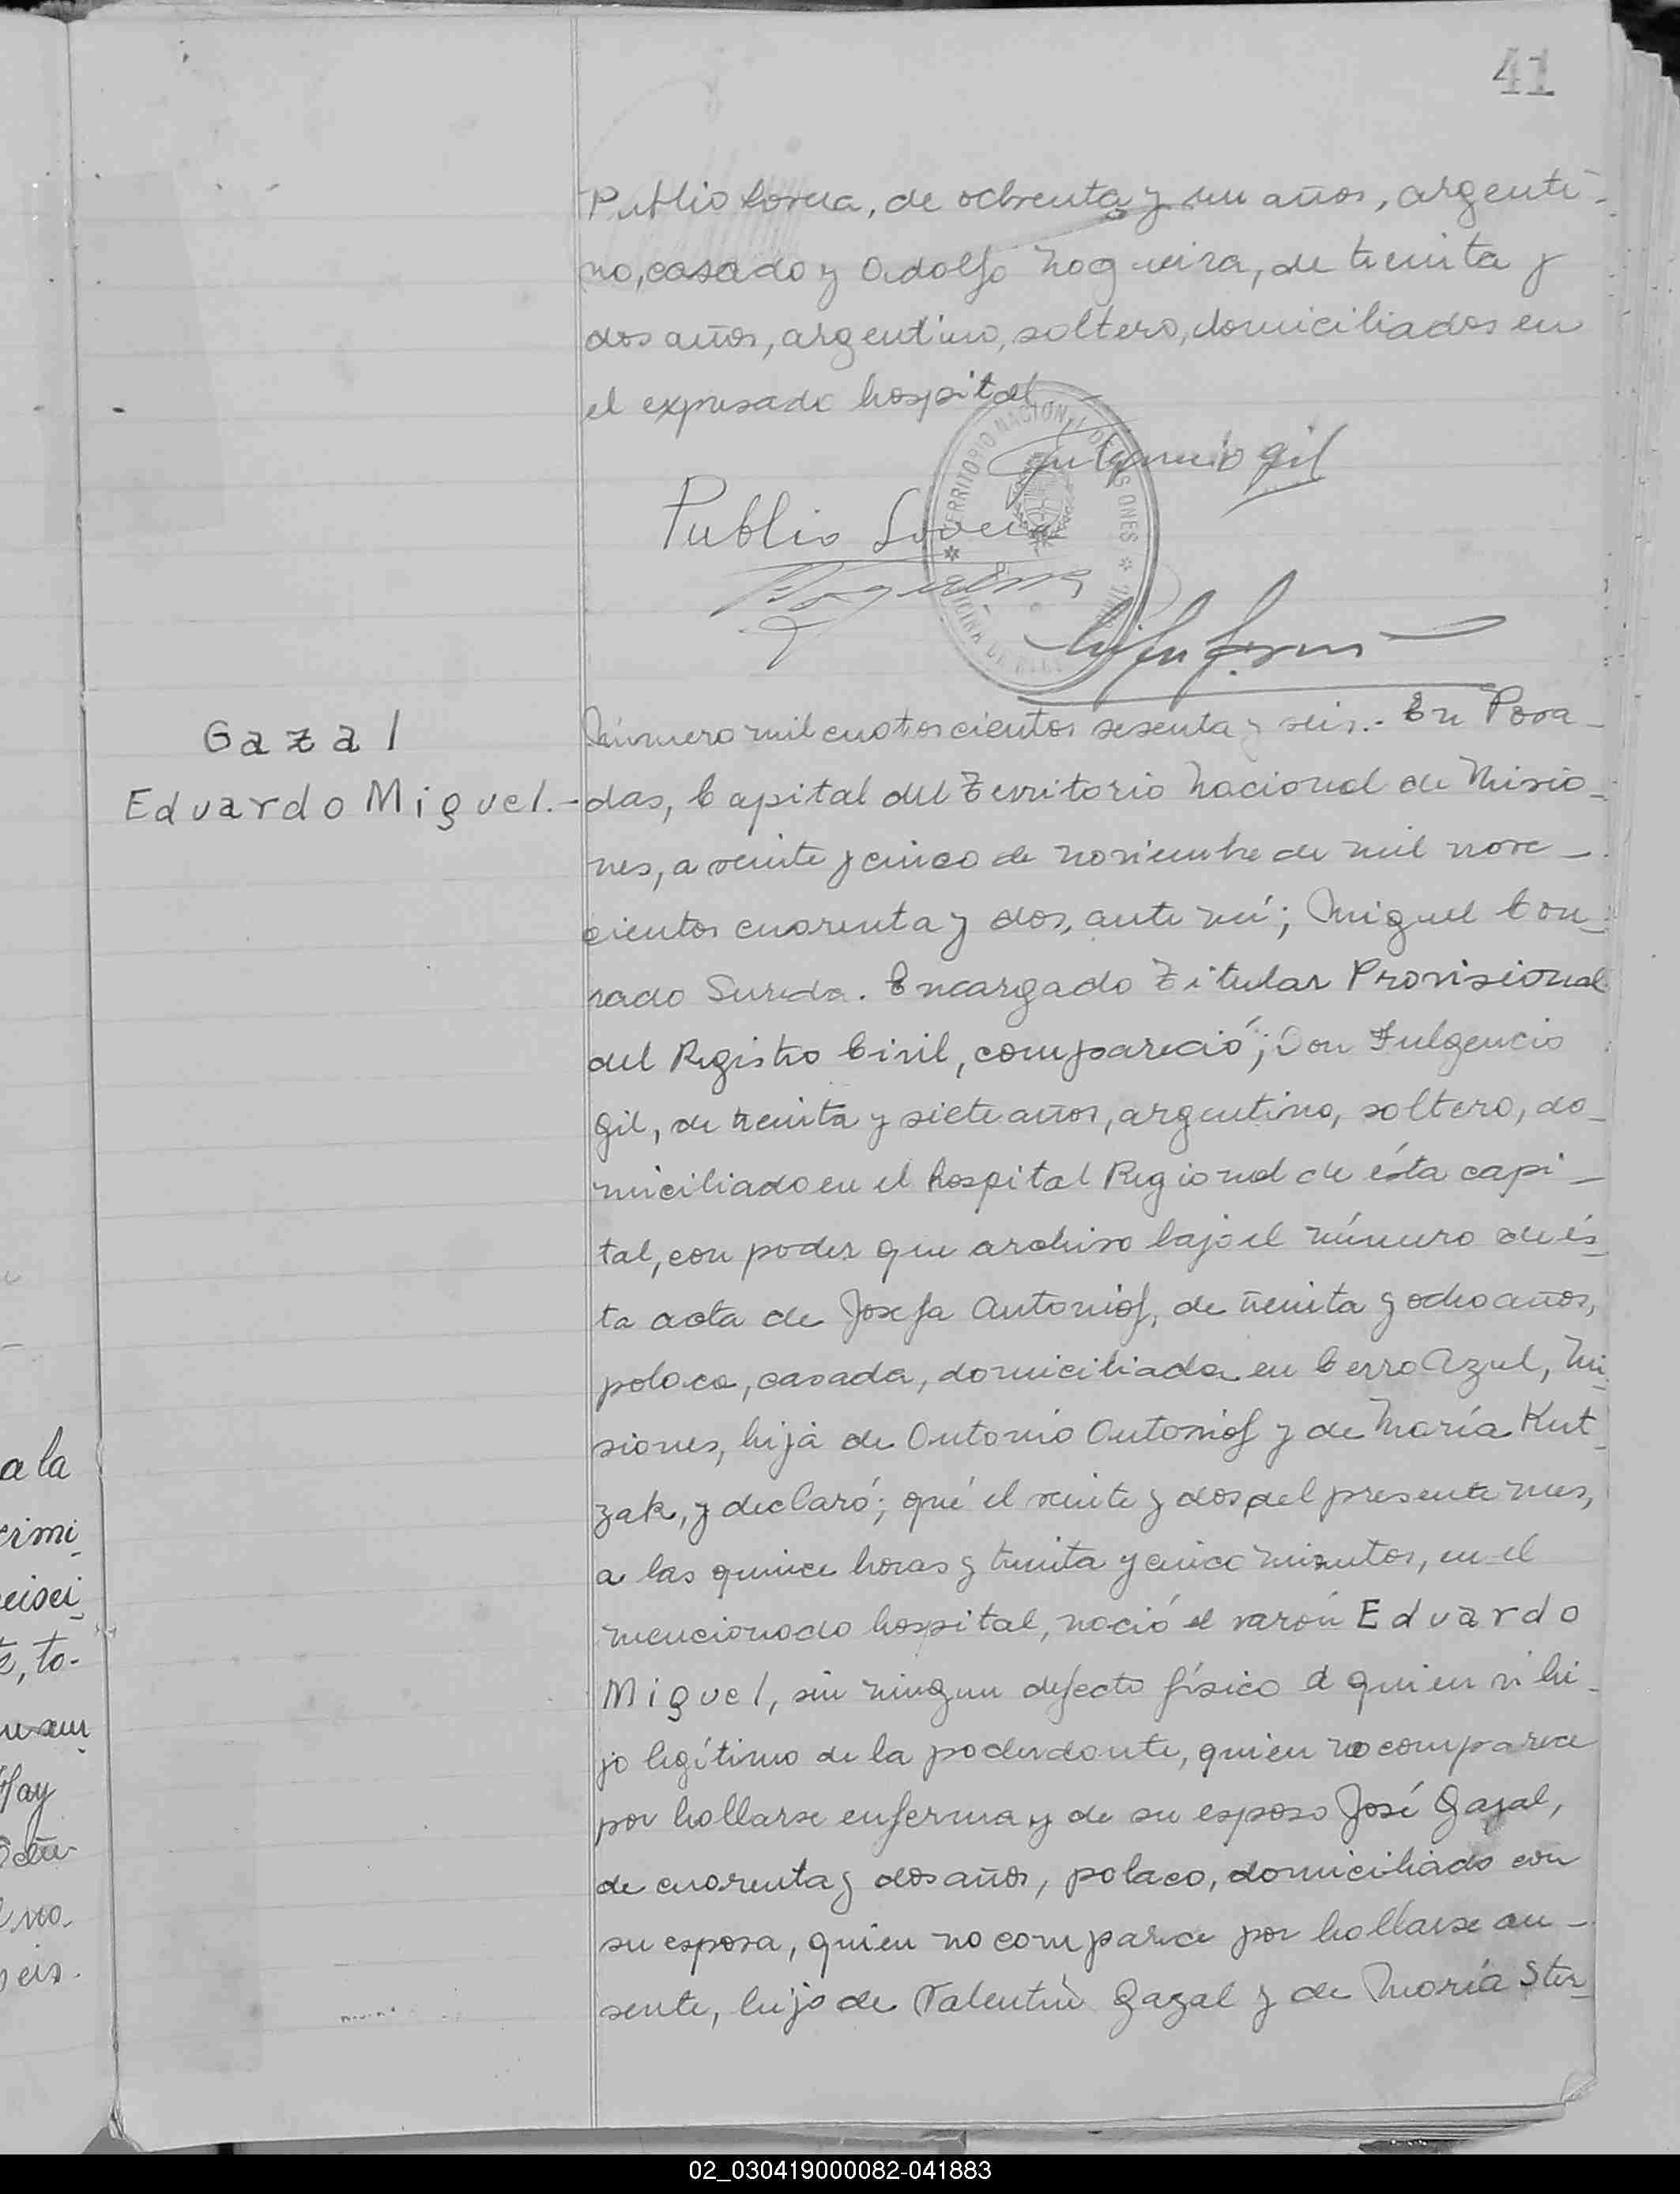 41
Publio Lovera, de ochenta y un años, argenti-
no, casado y Adolfo Nogueira, de treinta y
dos años, argentino, soltero, domiciliados en
el expresado hospital
Fulgencio Gil
Publio Lovera
Nogueira
TERRITORIO NACIONAL DE MISIONES
Gazal
Eduardo Miguel.-
Número mil cuatroscientos sesenta y seis.- En Posa-
das, Capital del Territorio Nacional de Misio-
nes, a veinte y cinco de noviembre de mil nove-
cientos cuarenta y dos, ante mí; Miguel Con-
rado Sureda. Encargado Titular Provisional
del Registro Civil, compareció; Don Fulgencio
Gil, de treinta y siete años, argentino, soltero, do-
miciliado en el hospital Regional de ésta capi-
tal, con poder que archivo bajo el número de és-
ta acta de Josefa Antoniof, de treinta y ocho años,
polaca, casada, domiciliada en Cerro Azul, Mi-
siones, hija de Antonio Antoniof y de María Kut-
zak, y declaró; qué el veinte y dos del presente mes,
a las quince horas y treinta y cinco minutos, en el
mencionado hospital, nació el varón Eduardo
Miguel, sin ningun defecto físico a quien vi hi-
jo legítimo de la poderdante, quien no comparece
por hallarse enferma y de su esposo José Gazal,
de cuarenta y dos años, polaco, domiciliado con
su esposa, quien no comparece por hallarse au-
sente, hijo de Valentín Gazal y de María Ster-
a la
crimi-
eisei-
to-
Hay
no-
seis.
02_030419000082-041883